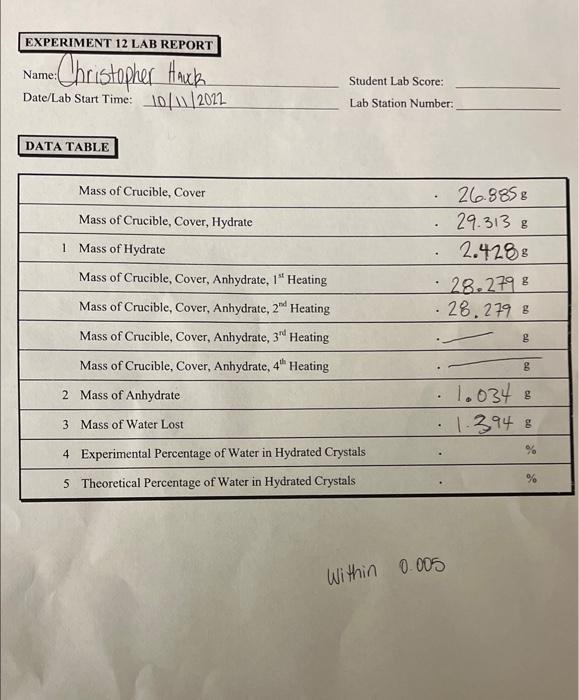 EXPERIMENT 12 LAB REPORT
Name: Christopher Hauck
Student Lab Score:
Date/Lab Start Time: 10/11/2022
Lab Station Number:
DATA TABLE
Mass of Crucible, Cover . 26.885 g
Mass of Crucible, Cover, Hydrate . 29.313 g
1 Mass of Hydrate . 2.428 g
Mass of Crucible, Cover, Anhydrate, 1st Heating . 28.279 g
Mass of Crucible, Cover, Anhydrate, 2nd Heating . 28.279 g
Mass of Crucible, Cover, Anhydrate, 3rd Heating . — g
Mass of Crucible, Cover, Anhydrate, 4th Heating . — g
2 Mass of Anhydrate . 1.034 g
3 Mass of Water Lost . 1.394 g
4 Experimental Percentage of Water in Hydrated Crystals . %
5 Theoretical Percentage of Water in Hydrated Crystals . %
Within 0.005